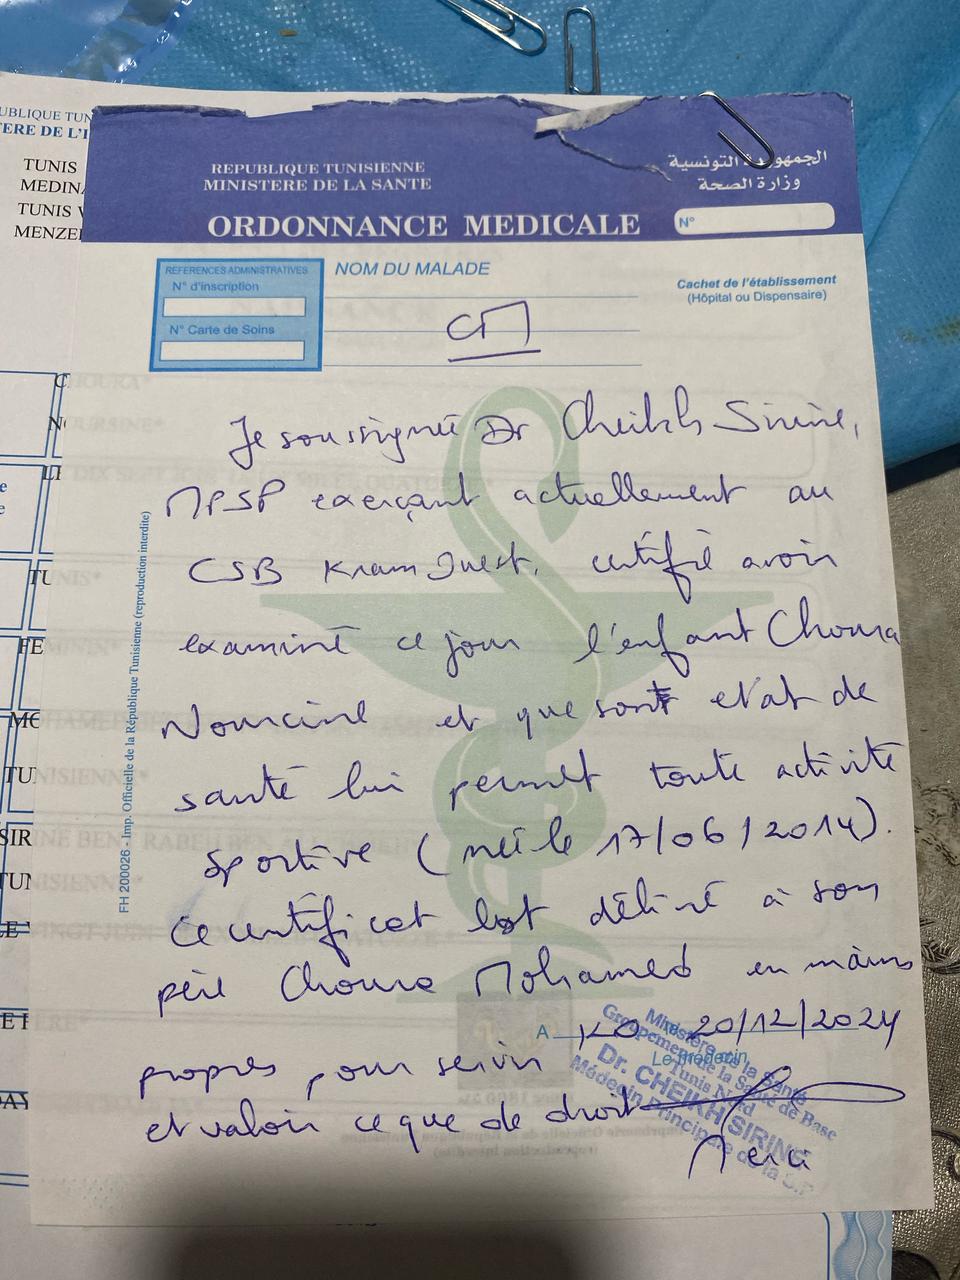 REPUBLIQUE TUNISIENNE
MINISTERE DE LA SANTE
الجمهورية التونسية
وزارة الصحة
ORDONNANCE MEDICALE
N°
REFERENCES ADMINISTRATIVES
N° d'inscription
N° Carte de Soins
NOM DU MALADE
Cachet de l'établissement
(Hôpital ou Dispensaire)
CM
Je soussignée Dr Cheikh Sirine,
MPSP exerçant actuellement au
CSB Kram Ouest, certifié avoir
examiné ce jour l'enfant Choura
Nourcine et que son etat de
santé lui permet toute activité
sportive (née le 17/06/2014).
Ce certificat est délivré à son
père Choura Mohamed en mains
A KO le 20/12/2024
propres pour servir
Le médecin
et valoir ce que de droit
Merci
Ministère de la Santé
Groupement de la Santé de Base
Tunis Nord
Dr. CHEIKH SIRINE
Médecin Principale de la S.P
FH 200026 - Imp. Officielle de la République Tunisienne (reproduction interdite)
TUNIS